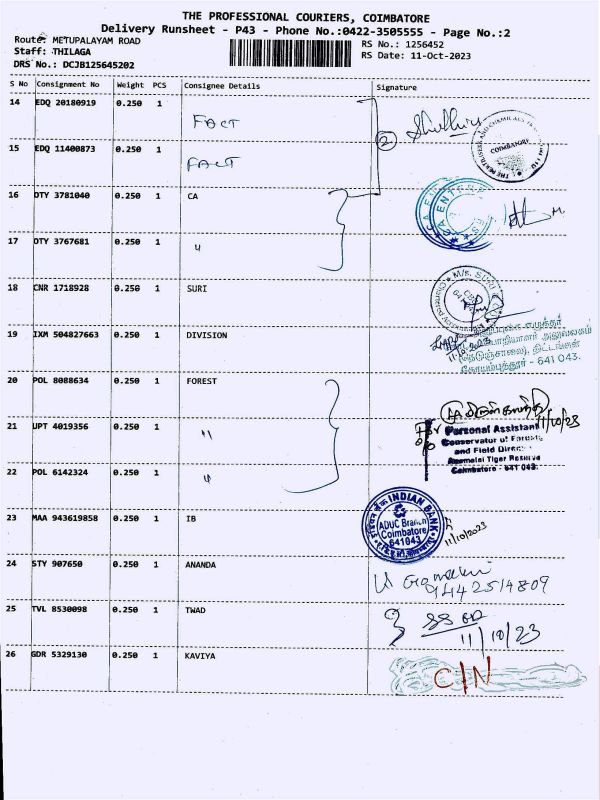 THE PROFESSIONAL COURIERS, COIMBATORE
Delivery Runsheet - P43 - Phone No.:0422-3505555 - Page No.:2
Route: METUPALAYAM ROAD
RS No.: 1256452
Staff: THILAGA
RS Date: 11-Oct-2023
DRS No.: DCJB125645202
S No Consignment No Weight PCS Consignee Details Signature
14 EDQ 20180919 0.250 1 FACT
2
COIMBATORE
15 EDQ 11400873 0.250 1 FACT
16 DTY 3781040 0.250 1 CA
17 DTY 3767681 0.250 1 "
18 CNR 1718928 0.250 1 SURI
M/s. SURI
19 IXM 504827663 0.250 1 DIVISION
நெடுஞ்சாலை), திட்டங்கள்
கோயம்புத்தூர் - 641 043.
20 POL 8088634 0.250 1 FOREST
11/10/23
21 UPT 4019356 0.250 1 "
For
Personal Assistant
Conservator of Forests
and Field Director
Anamalai Tiger Reserve
Coimbatore - 641 043.
22 POL 6142324 0.250 1 "
23 MAA 943619858 0.250 1 IB
INDIAN BANK
ADUC Branch
Coimbatore
641043
11/10/2023
24 STY 907650 0.250 1 ANANDA
9442514809
25 TVL 8530098 0.250 1 TWAD
11/10/23
26 GDR 5329130 0.250 1 KAVIYA
C/N